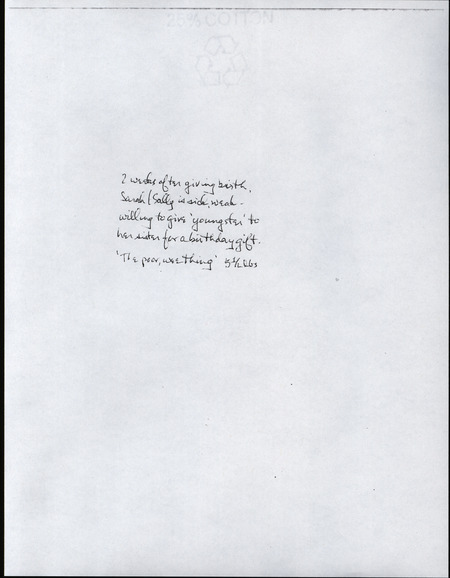 25% COTTON
2 weeks after giving birth,
Sarah/Sally is sick, weak -
willing to give 'youngster' to
her sister for a birthday gift.
'The poor, wee thing' 5½ lbs